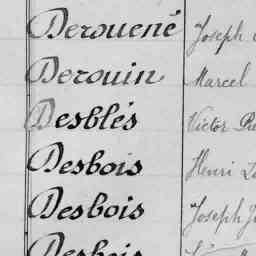 Derouené Joseph
Derouin Marcel
Desblés Victor
Desbois Henri
Desbois Joseph
Desbois